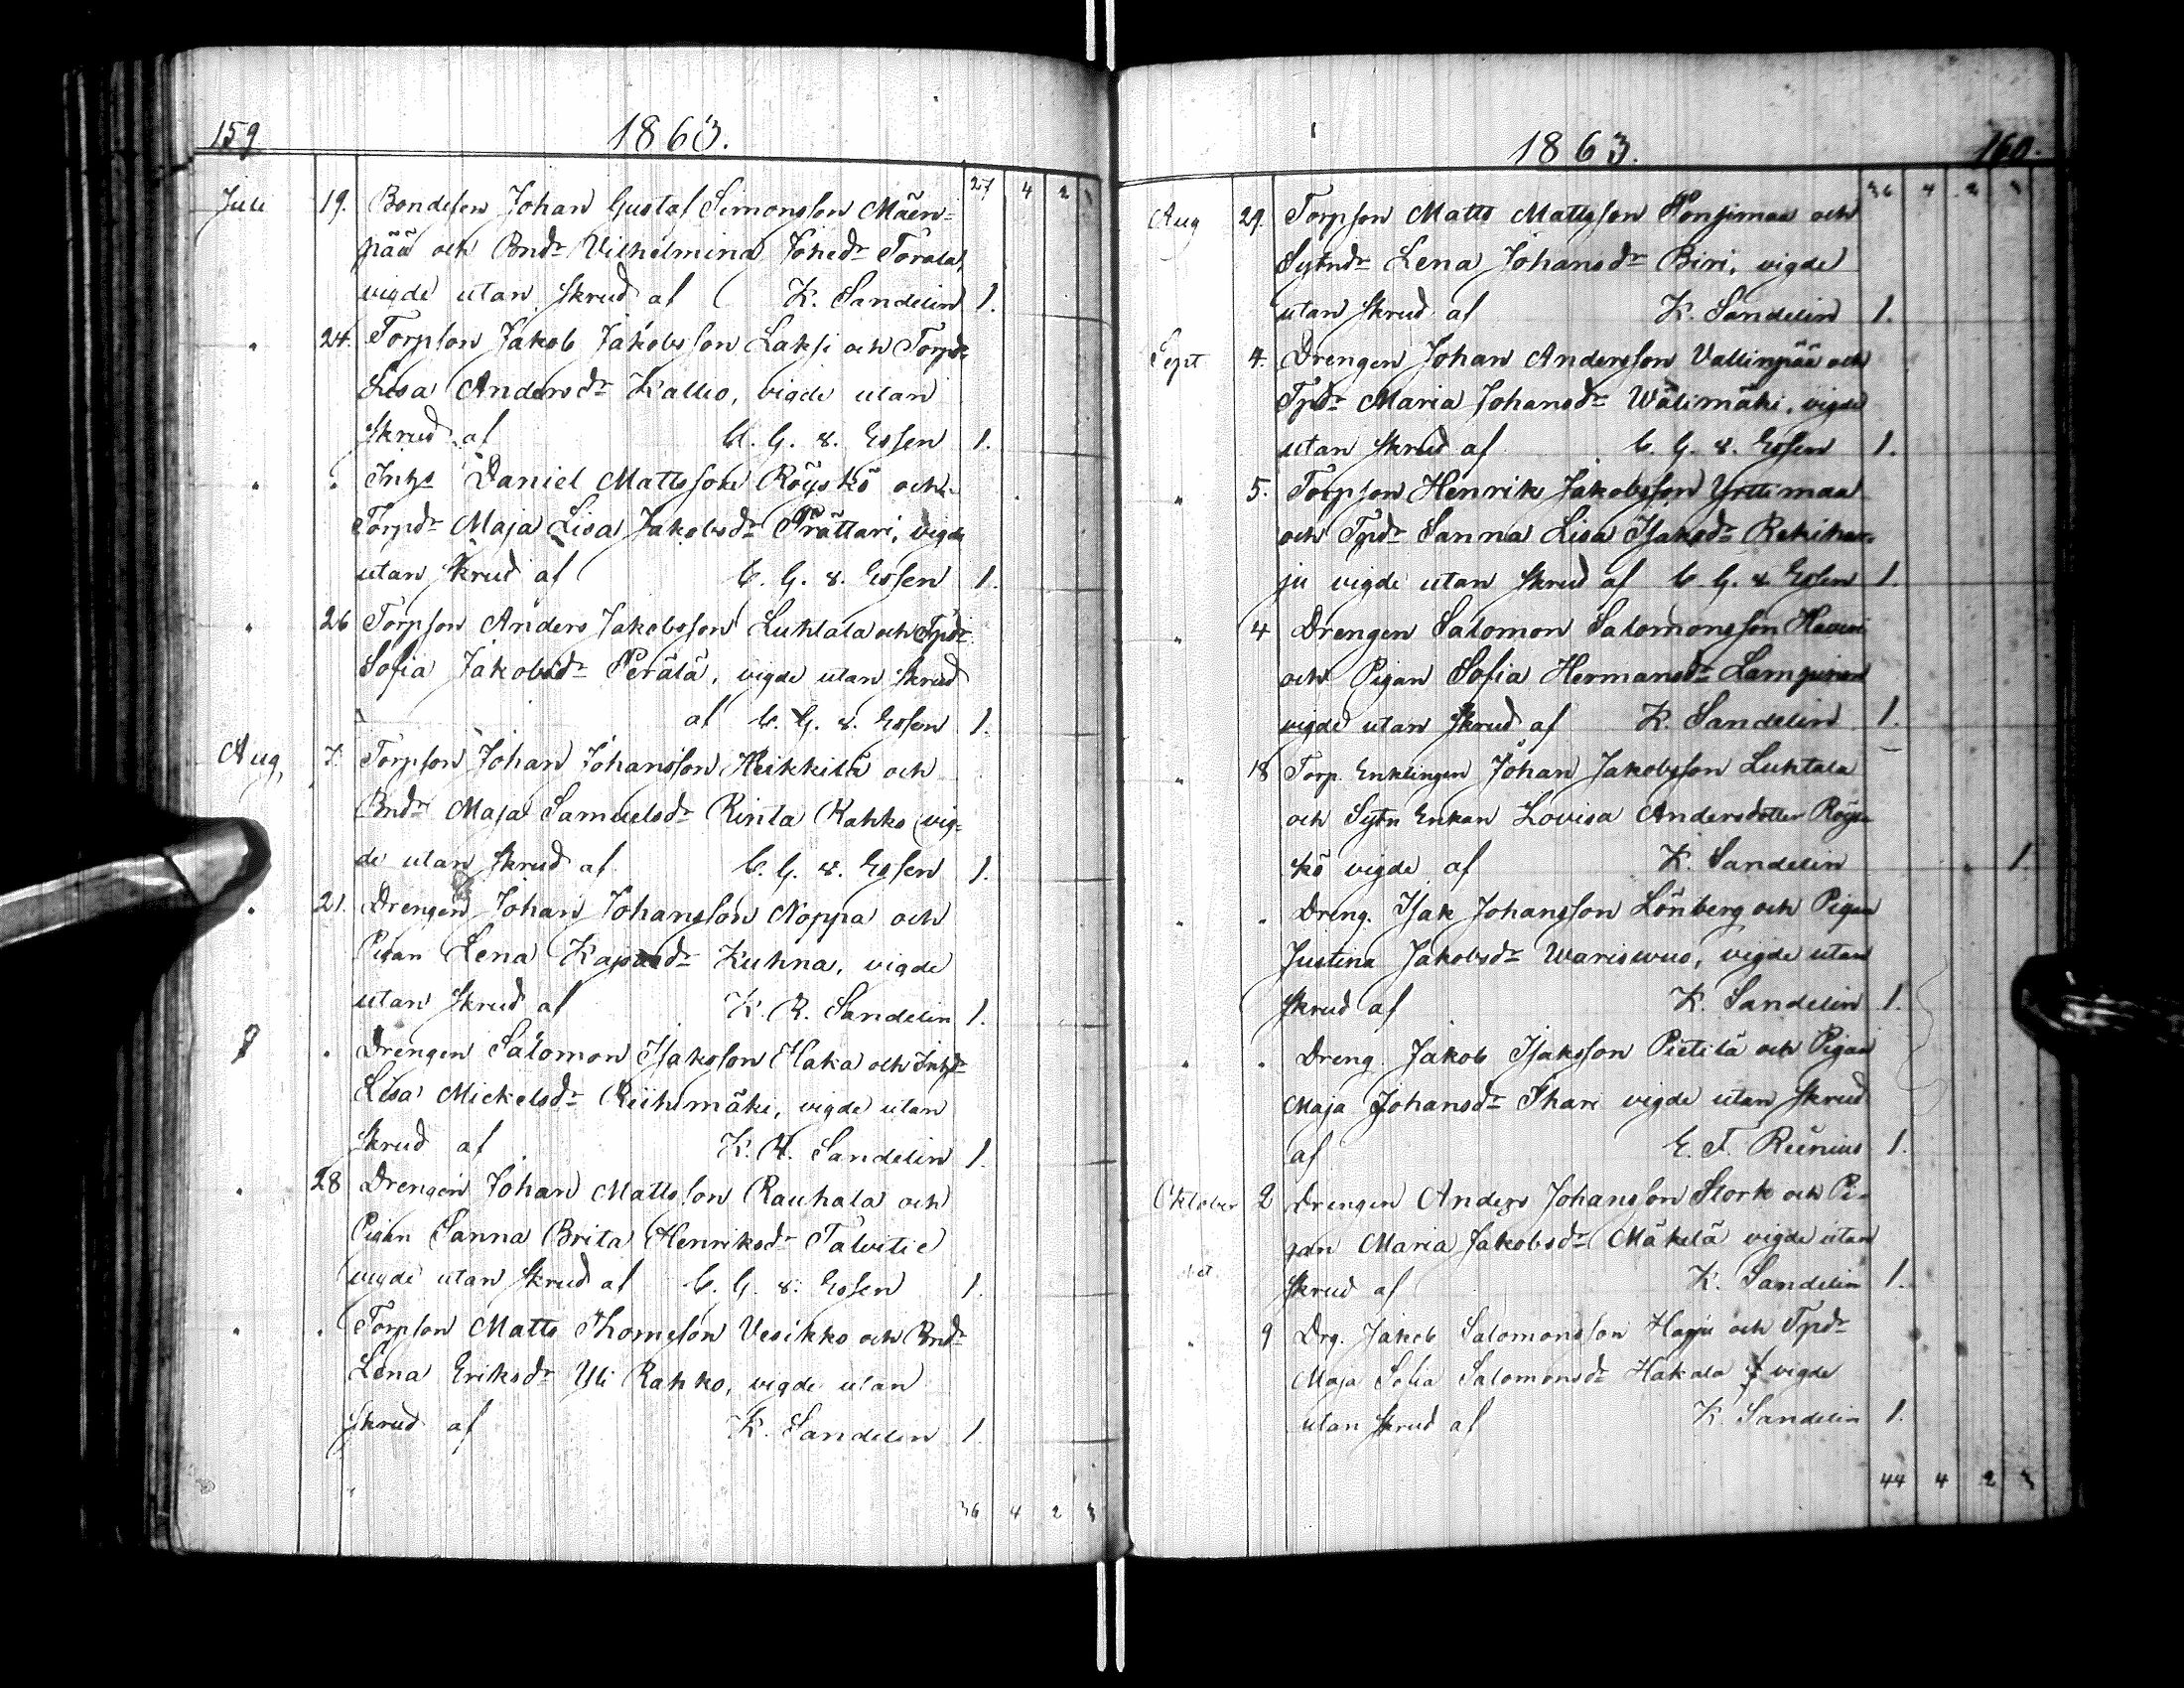 159 1863.
27 4 2
Juli 19. Bondesen Johan Gustaf Simonsson Mäen-
pää och Bndr Vilhelmina Johsdr Torala,
vigde utan skrud af K. Sandelin 1.
" 24. Torpson Jakob Jakobsson Laksi och Torpdr
Lisa Andersdr Kallio, vigde utan
skrud af C. G. v. Essen 1.
" " Inhs Daniel Mattsson Röyskö och
Torpdr Maja Lisa Jakobsdr Prättäri, vigde
utan skrud af C. G. v. Essen 1.
" 26 Torpson Anders Jakobsson Luhtala och Tpdr
Sofia Jakobsdr Perälä, vigde utan skrud
af C. G. v. Essen 1.
Aug, 7. Torpson Johan Johansson Heikkilä och
Bndr Maja Samuelsdr Rinta Kahko vig-
de utan skrud af C. G. v. Essen 1.
" 21. Drengen Johan Johansson Noppa och
Pigan Lena Kuhna, vigde
utan skrud af K. R. Sandelin 1.
" Drengen Salomon Isaksson Haka och Inhdr
Lisa Mickelsdr Riihimäki, vigde utan
skrud af K. R. Sandelin 1.
" 28 Drengen Johan Mattsson Rauhala och
Pigan Sanna Brita Henriksdr Talvitie
vigde utan skrud af C. G. v. Essen 1.
" " Torpson Matts Thomsson Vesikko och Bndr
Lena Eriksdr Yli Rahko, vigde utan
skrud af K. Sandelin 1.
36 4 2
1863. 160.
36 4 2
Aug 29. Torpson Matts Mattsson Ponsimaa och
Sytndr Lena Johansdr Biri, vigde
utan skrud af K. Sandelin 1.
Sept 4. Drengen Johan Andersson Vallinpää och
Tpdr Maria Johansdr Wälimäki, vigde
utan skrud af C. G. v. Essen 1.
" 5. Torpson Henrik Jakobsson Yrttimaa
och Tpdr Sanna Lisa Isaksdr Rekihar-
ju vigde utan skrud af C. G. v. Essen 1.
" 4 Drengen Salomon Salomonsson
och Pigan Sofia Hermansdr Lampinen
vigde utan skrud af K. Sandelin 1.
" 18 Torp. Enklingen Johan Jakobsson Luhtala
och Sytn Enkan Lovisa Andersdotter Röys-
kö vigde af K. Sandelin 1.
" " Dreng. Isak Johansson Lönberg och Pigan
Justina Jakobsdr Wariswuo, vigde utan
skrud af K. Sandelin 1.
" " Dreng. Jakob Isaksson Pietilä och Pigan
Maja Johansdr Ihari vigde utan skrud
af E. F. Reinius 1.
Oktober 2 Drengen Anders Johansson Stork och Pi-
gan Maria Jakobsdr Mäkelä vigde utan
skrud af K. Sandelin 1.
" 9 Drg. Jakob Salomonsson Harju och Tpdr
Maja Sofia Salomonsdr Hakala vigde
utan skrud af K. Sandelin 1.
44 4 2